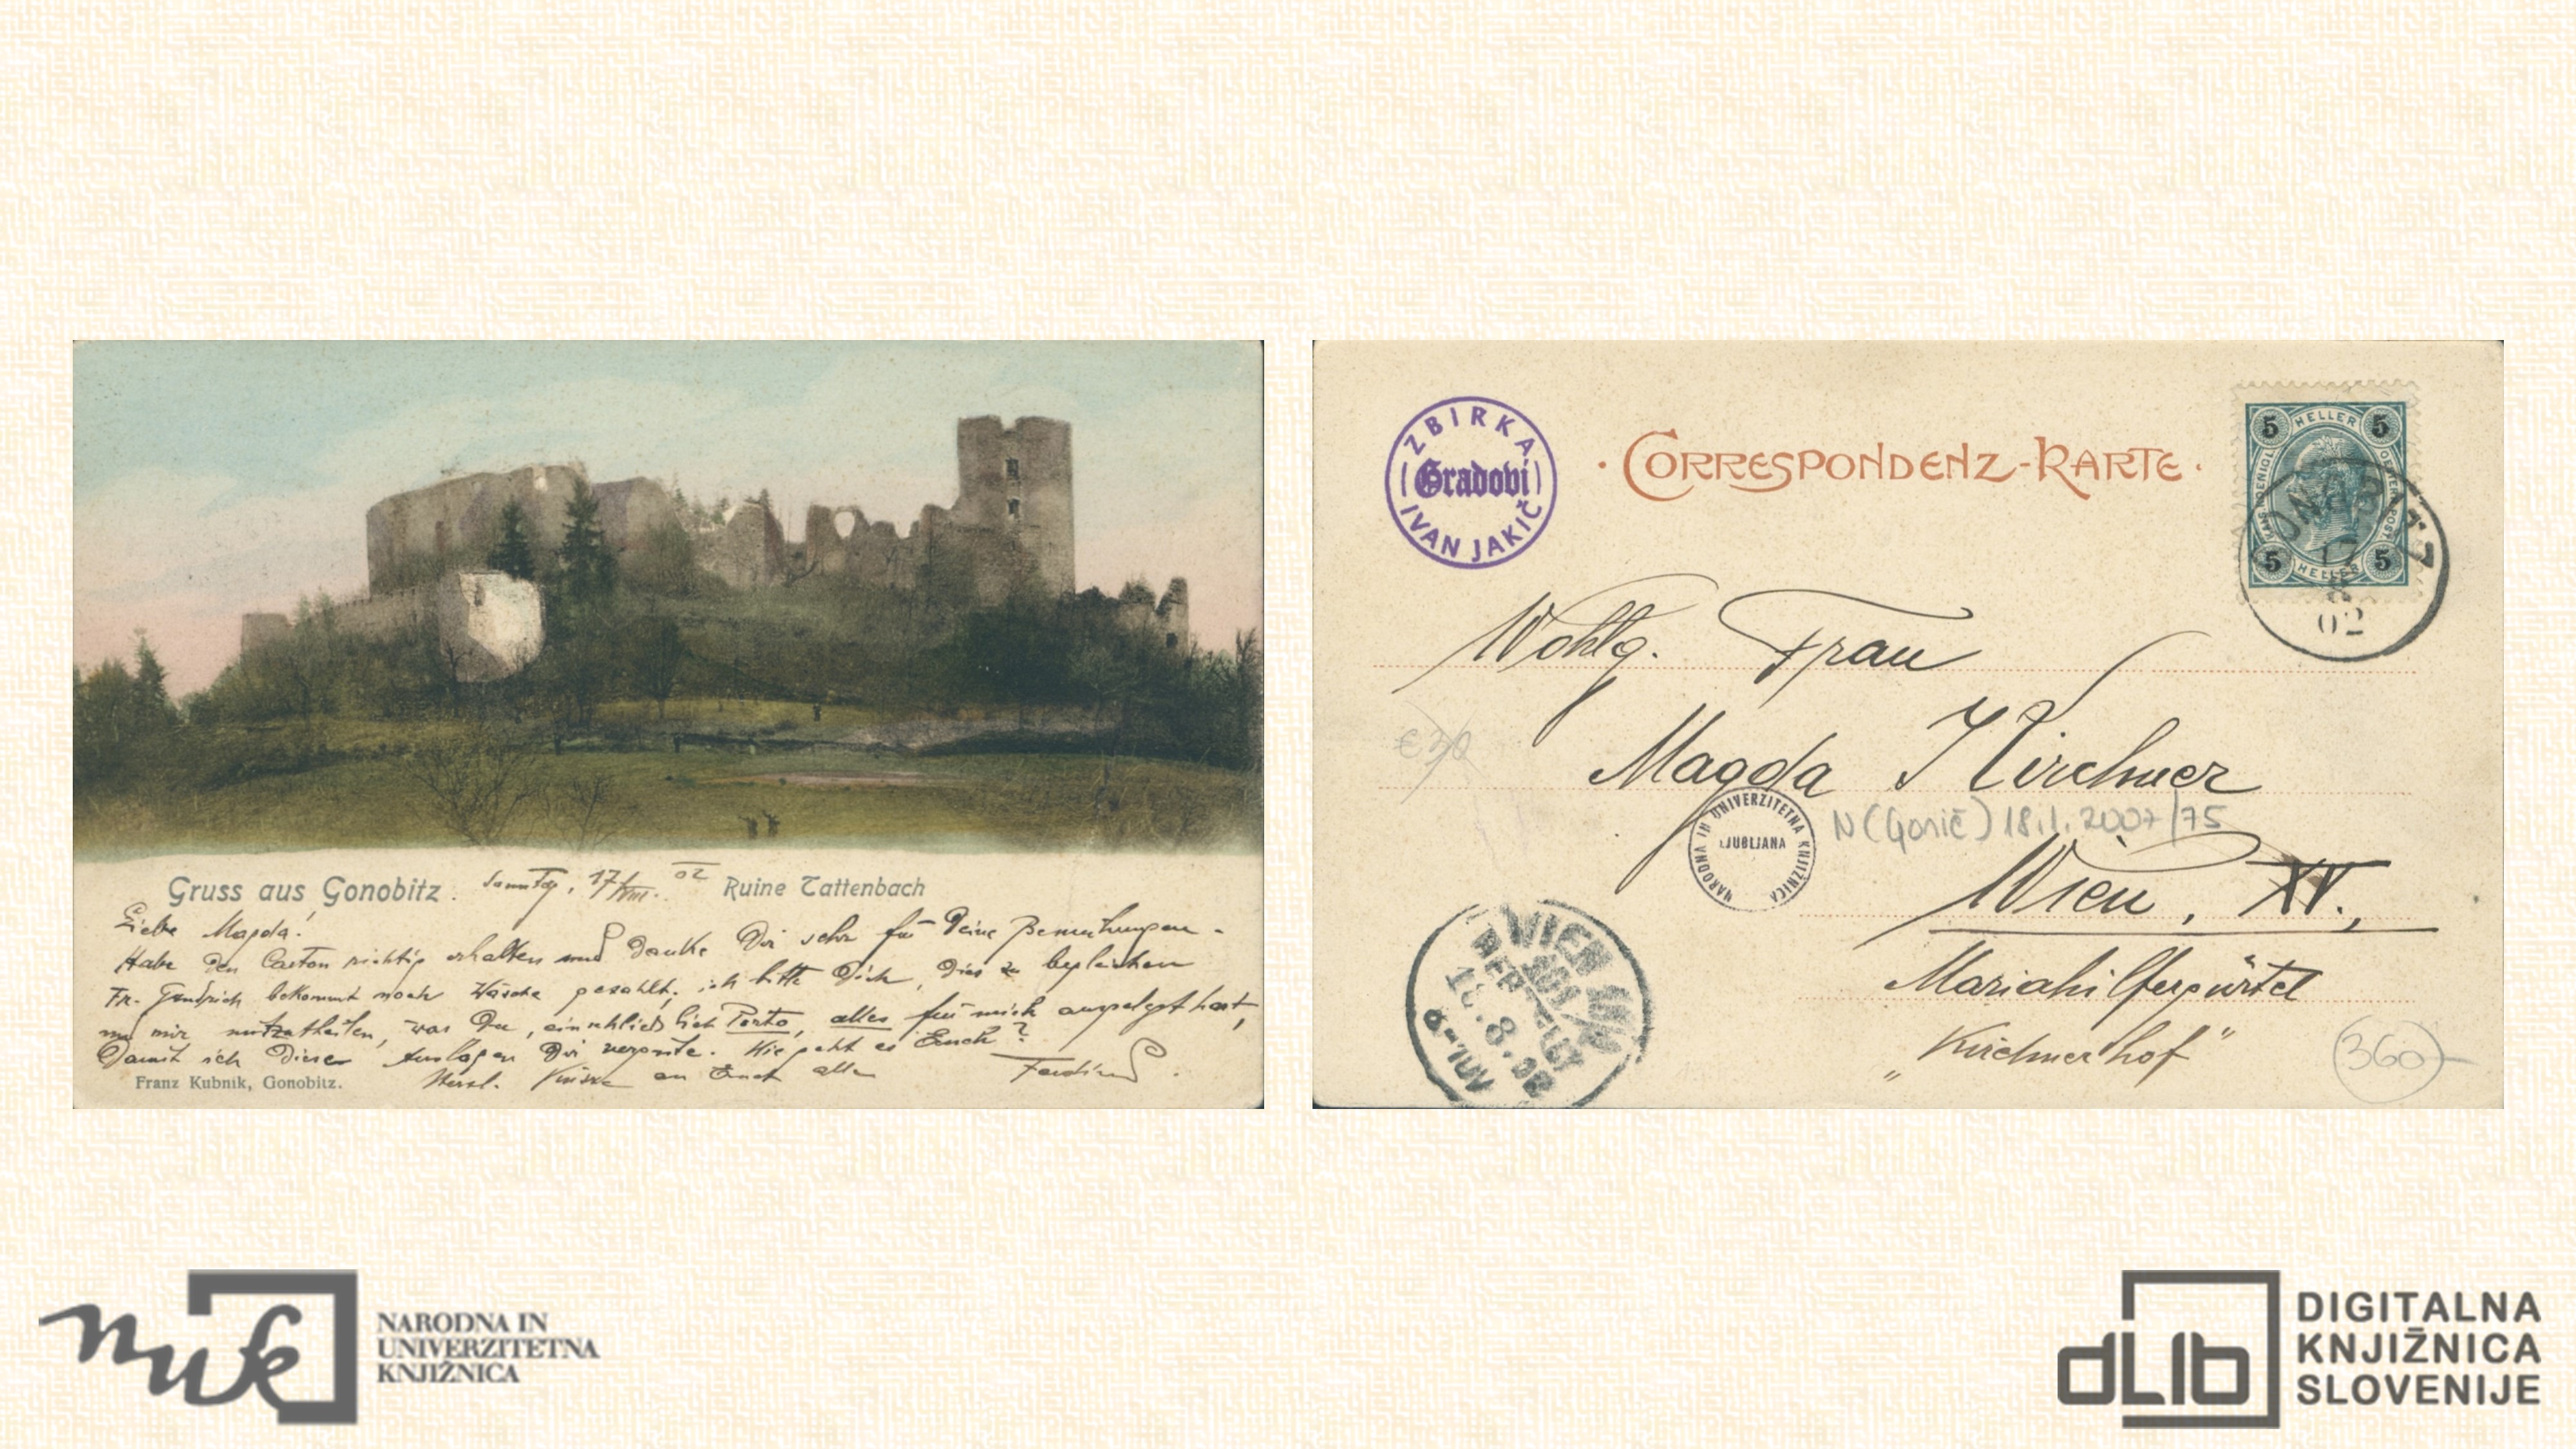 Gruss aus Gonobitz. Sonntag, 17/VIII. 02 Ruine Tattenbach
Liebe Magda!
Habe den Carton richtig erhalten und danke Dir sehr für Deine Bemühungen.
Fr. bekommt noch Wäsche gezahlt; ich bitte Dich, dies zu begleichen
und mir mitzutheilen, was Du, einschließlich Porto, alles für mich ausgelegt hast,
damit ich diese Auslagen Dir vergüte. Wie geht es Euch?
Herzl. Küsse an Euch alle Ferdinand.
Franz Kubnik, Gonobitz.
ZBIRKA
Gradovi
IVAN JAKIČ
CORRESPONDENZ-KARTE
5 HELLER 5
5 HELLER 5
17
8
02
Wohlg. Frau
Magda Kirchner
€ 30
NARODNA IN UNIVERZITETNA KNJIŽNICA
LJUBLJANA
N (Gorič) 18.1.2007/75
Wien, XV.,
Mariahilfergürtel
„Kirchnerhof"
360
WIEN
BESTELLT
18.8.02
8-10V
nuk
NARODNA IN
UNIVERZITETNA
KNJIŽNICA
dLib
DIGITALNA
KNJIŽNICA
SLOVENIJE